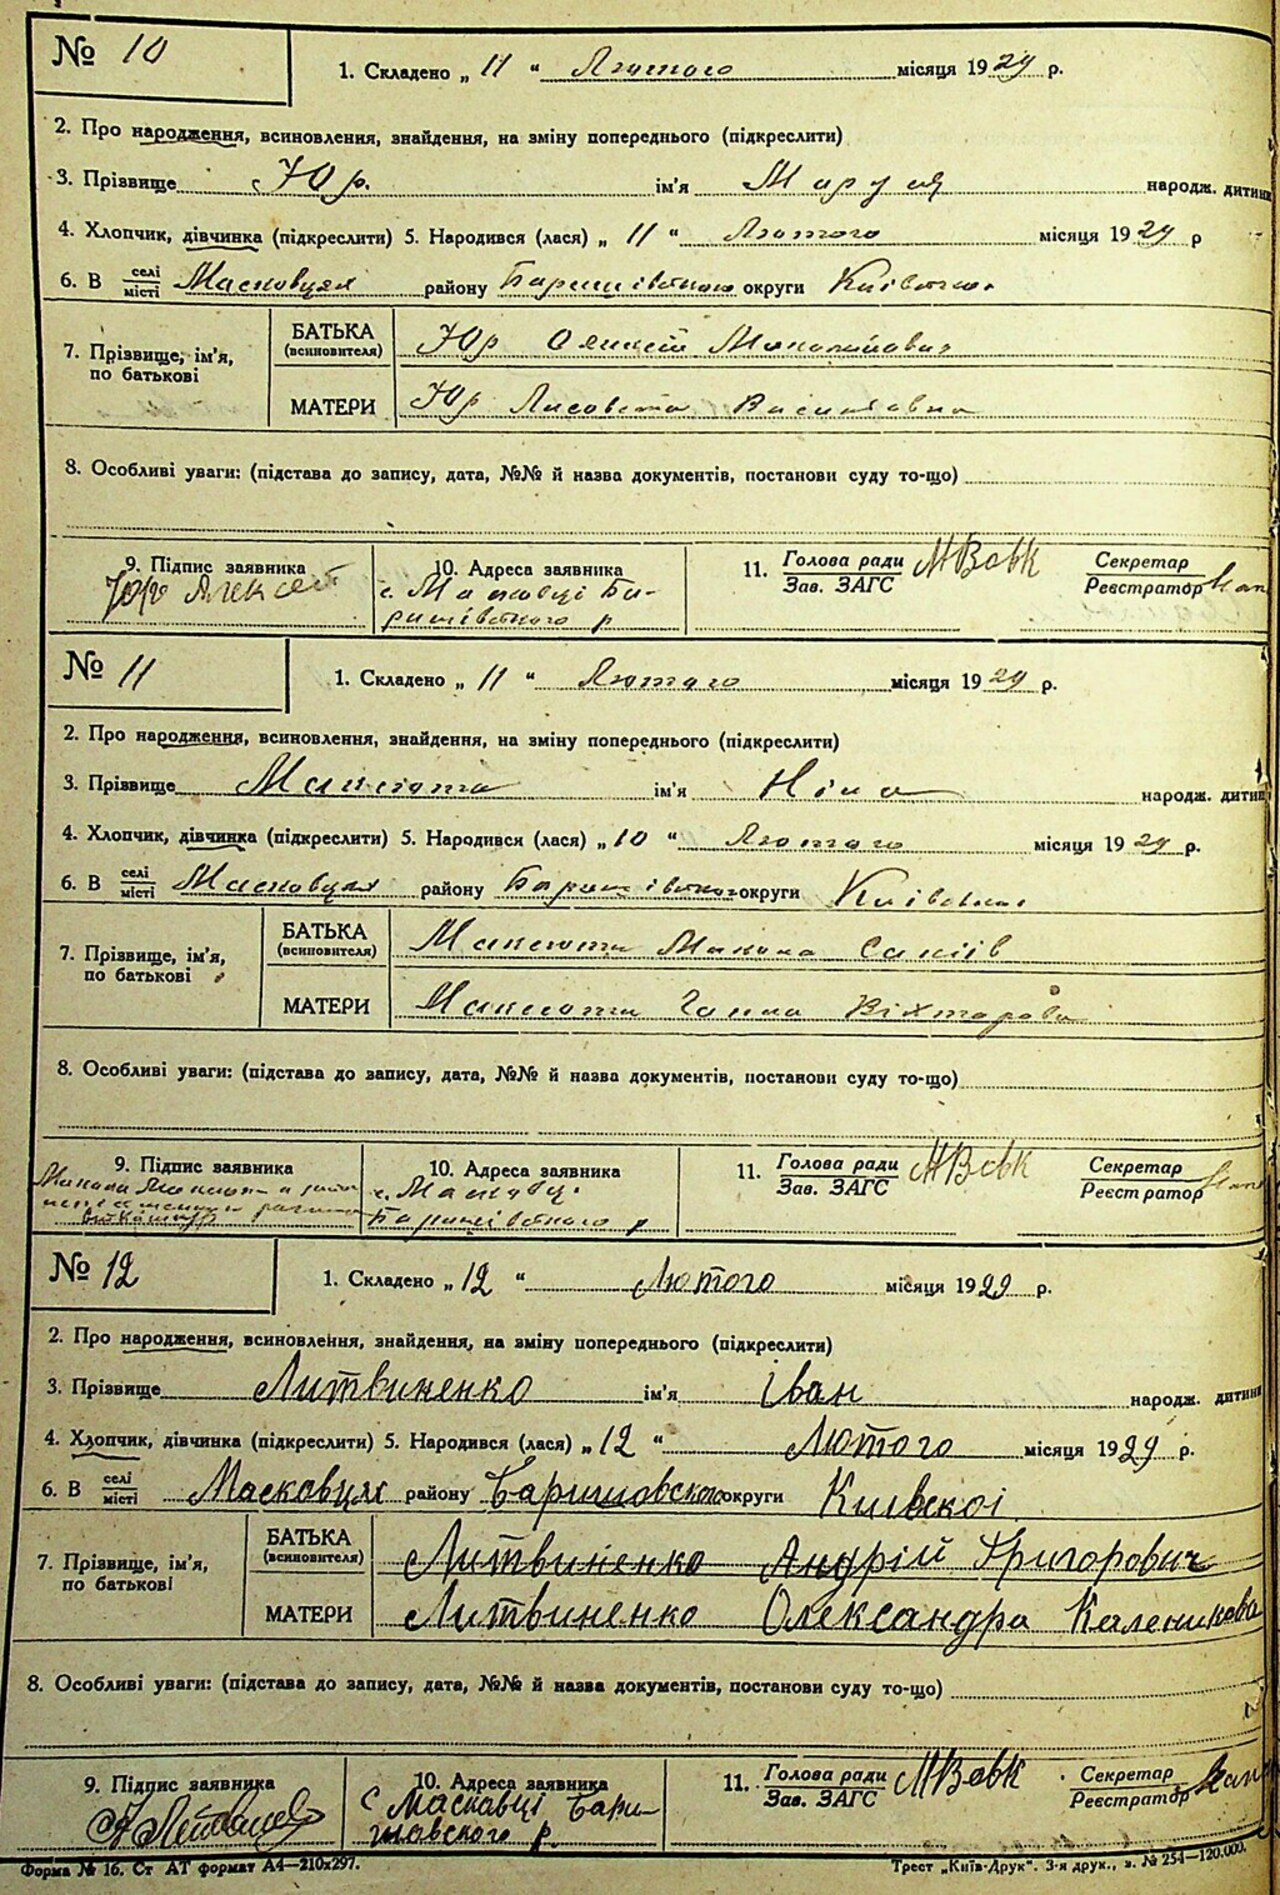 № 10
1. Складено „ 11 “ Лютого місяця 1929 р.
2. Про народження, всиновлення, знайдення, на зміну попереднього (підкреслити)
3. Прізвище Юр. ім'я Маруся народж. дитини
4. Хлопчик, дівчинка (підкреслити) 5. Народився (лася) „ 11 “ Лютого місяця 1929 р
6. В селі/місті Масковцях району Баришівського округи Київської
7. Прізвище, ім'я, по батькові
БАТЬКА (всиновителя) Юр Олексій
МАТЕРИ Юр Лисовета Василівна
8. Особливі уваги: (підстава до запису, дата, №№ й назва документів, постанови суду то-що)
9. Підпис заявника
Юр Алексей
10. Адреса заявника
с. Масковці Ба-
ришівського р
11. Голова ради/Зав. ЗАГС МВовк
Секретар/Реєстратор
№ 11
1. Складено „ 11 “ Лютого місяця 1929 р.
2. Про народження, всиновлення, знайдення, на зміну попереднього (підкреслити)
3. Прізвище Максюта ім'я Ніна народж. дитин
4. Хлопчик, дівчинка (підкреслити) 5. Народився (лася) „ 10 “ Лютого місяця 1929 р.
6. В селі/місті Масковцях району Баришівського округи Київської
7. Прізвище, ім'я, по батькові
БАТЬКА (всиновителя) Максюта Микола
МАТЕРИ Максюта Ганна Віхторовн
8. Особливі уваги: (підстава до запису, дата, №№ й назва документів, постанови суду то-що)
9. Підпис заявника
10. Адреса заявника
с. Масковці
Баришівського р
11. Голова ради/Зав. ЗАГС МВовк
Секретар/Реєстратор
№ 12
1. Складено „ 12 “ Лютого місяця 1929 р.
2. Про народження, всиновлення, знайдення, на зміну попереднього (підкреслити)
3. Прізвище Литвиненко ім'я Іван народж. дитини
4. Хлопчик, дівчинка (підкреслити) 5. Народився (лася) „ 12 “ Лютого місяця 1929 р.
6. В селі/місті Масковцях району Баришовского округи Киівскоі
7. Прізвище, ім'я, по батькові
БАТЬКА (всиновителя) Литвиненко Андрій Григорович
МАТЕРИ Литвиненко Олександра Каленикова
8. Особливі уваги: (підстава до запису, дата, №№ й назва документів, постанови суду то-що)
9. Підпис заявника
10. Адреса заявника
с Маскавці Бари-
шовского р.
11. Голова ради/Зав. ЗАГС МВовк
Секретар/Реєстратор
Форма № 16. Ст АТ формат А4—210х297.
Трест „Київ-Друк“. 3-я друк., з. № 254—120.000.